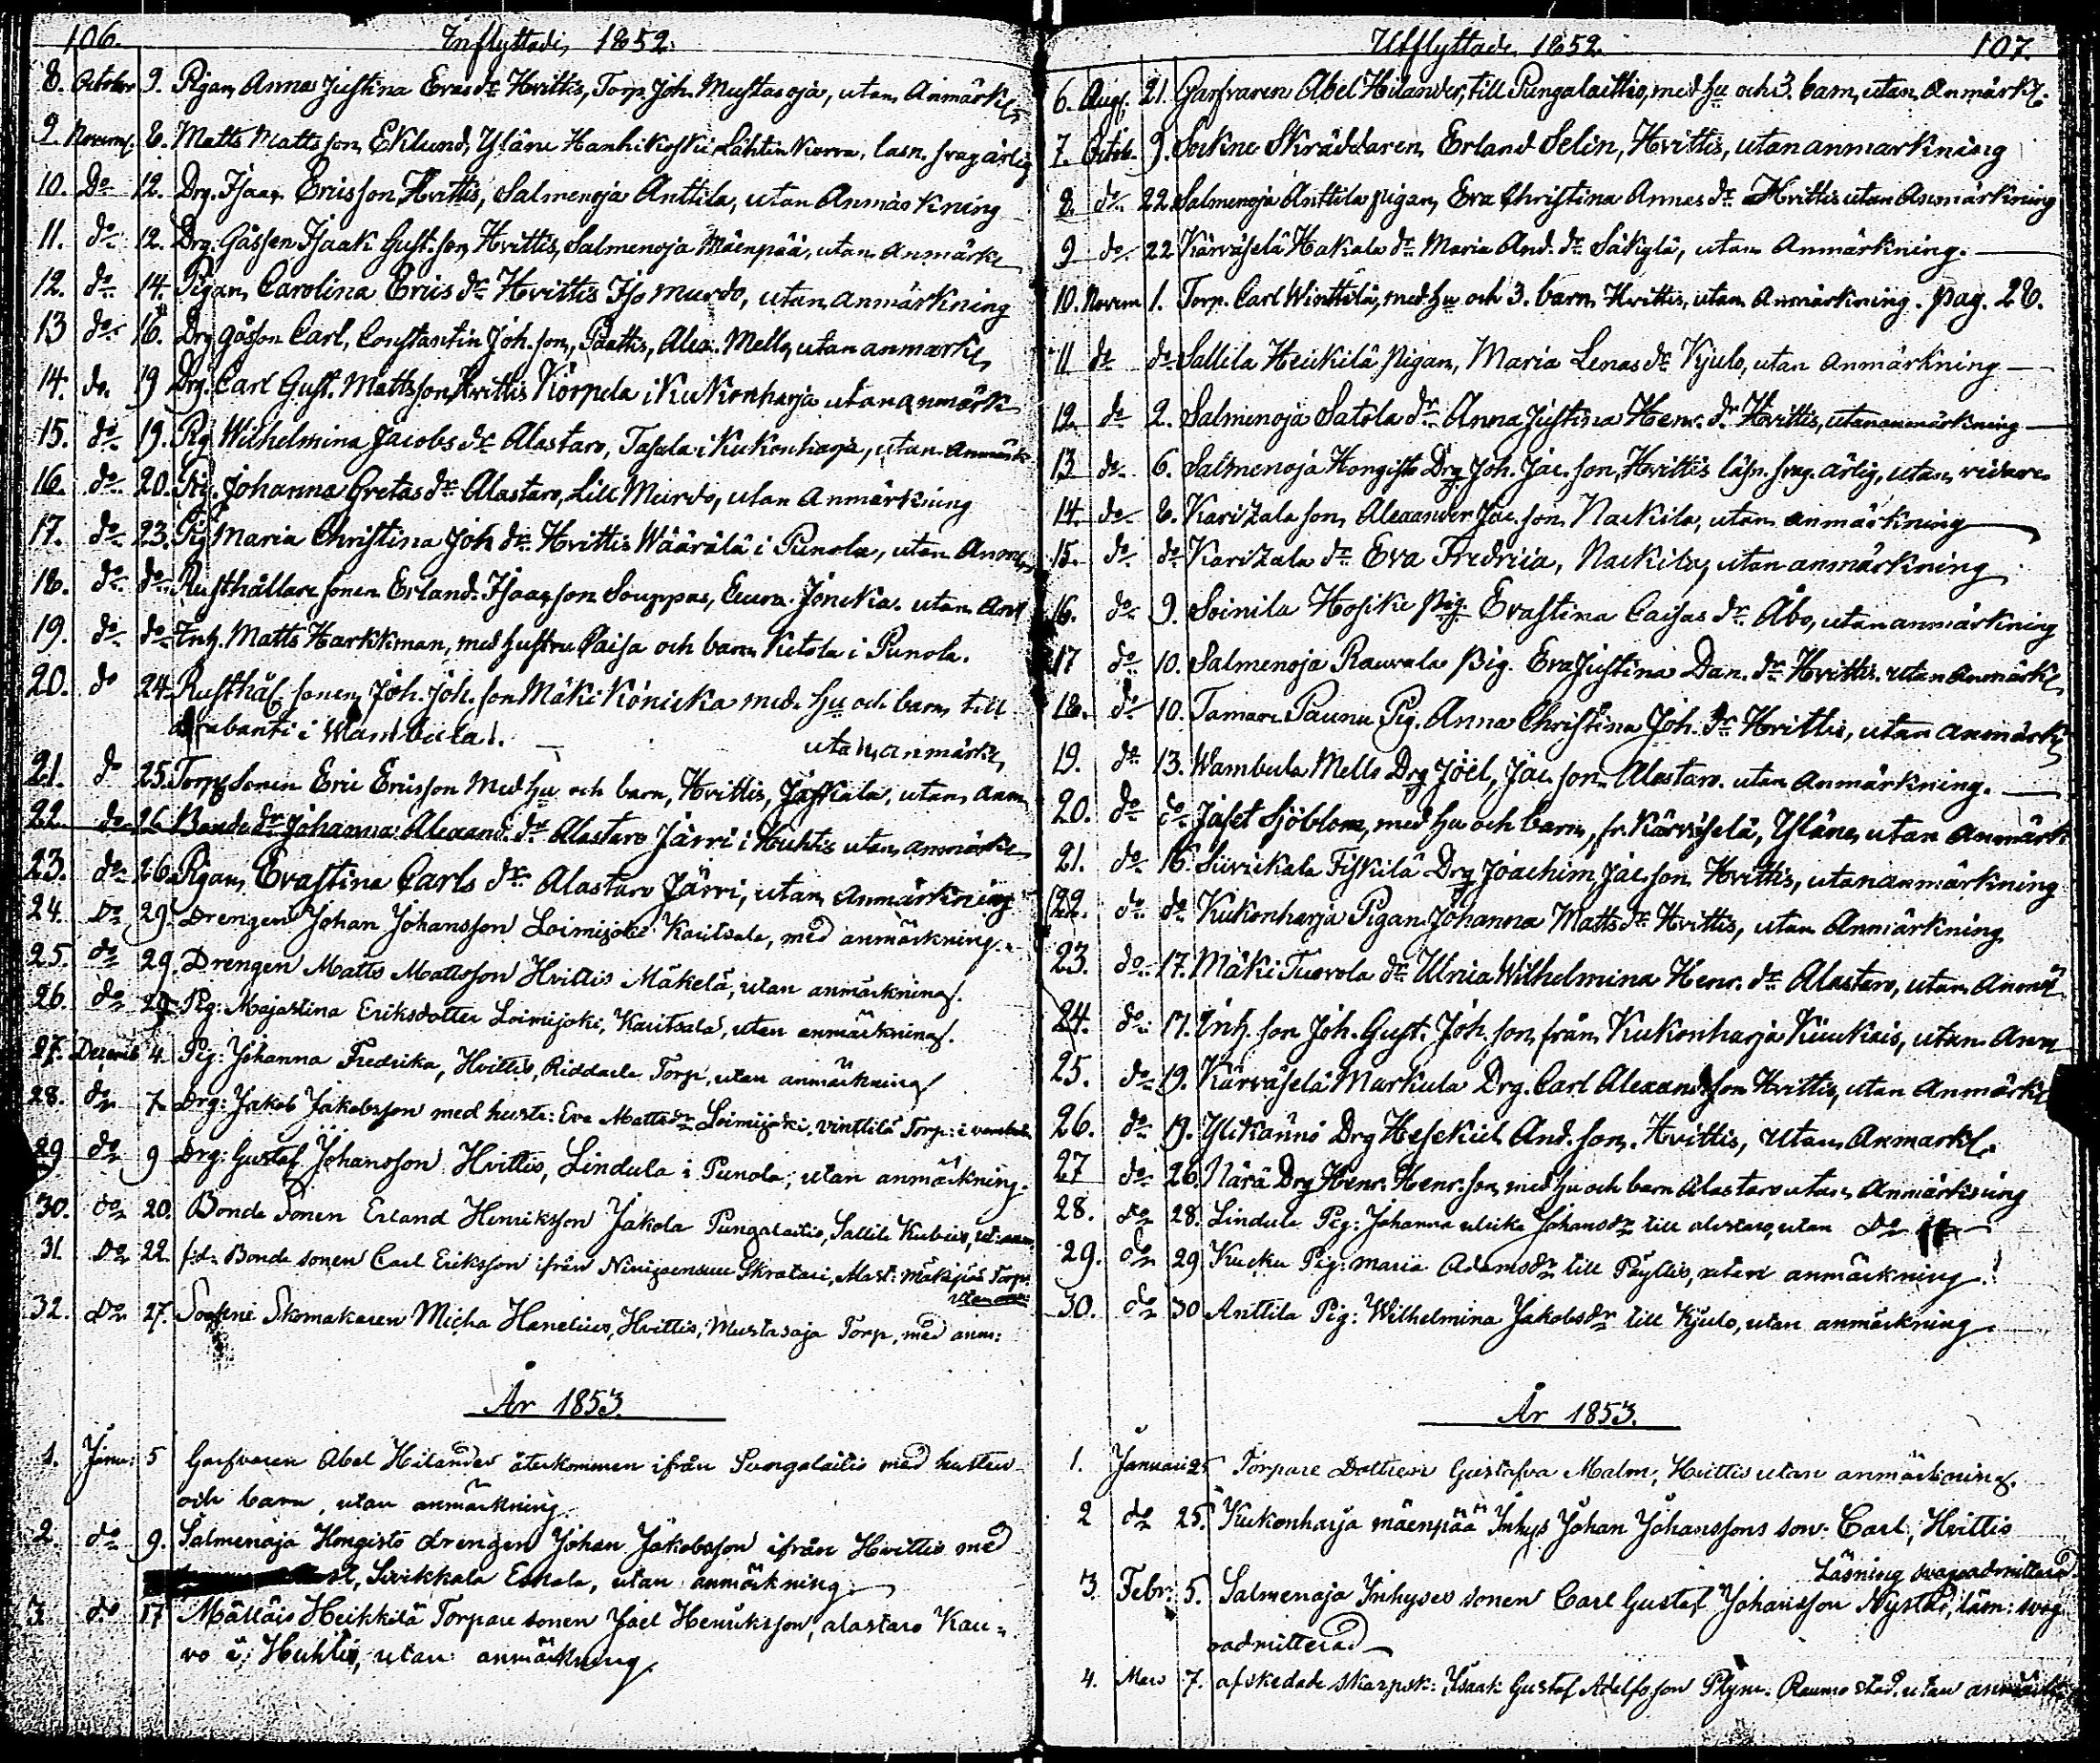 106. Inflyttade, 1852.
8. October 9. Pigan Anna Justina Evas dr Hvittis, Torp. Joh. Mustasoja, utan Anmärk
9. Novemb. 8. Matts Mattsson Eklund, Yläne Hanhikoski Lähtin Korva, läsn. svag ärlig
10. Do 12. Drg. Isaac Ericsson Hvittis, Salmenoja Anttila, utan Anmärkning
11. do 12. Drg. Gåssen Isaak Gust.son, Hvittis, Salmenoja Mäenpää, utan Anmärk
12. do 14. Pigan Carolina Erics dr Hvittis Iso Murdo, utan anmärkning
13 do 16. Drg gåsson Carl, Constantin Joh.son, Paattis, Alex. Mello, utan anmärk
14. do. 19 Drg. Carl Gust. Mattsson Hvittis Körpela i Kukonharja utan anmärk
15. do 19. Pig Wilhelmina Jacobs dr Alastaro, Tasala i Kukonharja, utan Anmärk
16. do. 20. Pig. Johanna Gretas dr Alastaro, Lill Murdo, utan Anmärkning
17. do 23. Pig Maria Christina Joh dr Hvittis Wäärälä i Punola, utan Anm
18. do do Rusthållare sonen Erland Isaacsson Souppas, Eura Jöncka. utan Anm
19. do do Inh. Matts Harkkman, med hustru Caisa och barn Ketola i Punola.
20. do 24. Rusthål. sonen Joh. Joh.son Mäki Könicka med hu och barn till
drabanti i Wambula. utan anmärk
21. do 25. Torp. Sonen Eric Ericsson med hu och barn, Hvittis, Jaskala, utan anm
22. do 26 Bonde dr Johanna Alexand. dr Alastaro Järri i Huhtis utan anmärk
23. do 26. Pigan, Evastina Carls dr Alastaro Järri, utan Anmärkning
24. Do 29. Drengen Johan Johansson Loimijoki Karitsala, med anmärkning.
25. do 29. Drengen Matts Mattsson Hvittis Mäkelä, utan anmärkning.
26. do 29 Pig: Majastina Eriksdotter Loimijoki, Karitsala, utan anmärkning.
27. Decemb 4. Pig: Johanna Fredrika, Hvittis, Riddarla Torp, utan anmärkning
28. do 7. Drg: Jakob Jakobsson med hustr: Eva Mattsdr Loimijoki, Vinttilä Torp: i
29 do 9 Drg: Gustaf Johansson Hvittis, Lindula i Punola, utan anmärkning.
30. do 20. Bonde Sonen Erland Henriksson Jakola Pungalaitio, Sallila Kubius, ut: anm
31. Do 22. f:d: Bonde sonen Carl Eriksson ifrån Skratari, Mast: Mäkipää Torp.
utan anm:
32. Do 27. Sockne Skomakaren Micha Hanelius, Hvittis, Mustasaja Torp, med anm:
År 1853.
1. Janu: 5 Garfvaren Abel Hilander återkommen ifrån Pungalaitio med hustru
och barn, utan anmärkning.
2. do 9. Salmenaja Hongisto drengen Johan Jakobsson ifrån Hvittis med
Suikkala Eskola, utan anmärkning
3. do 17 Mälläis Heikkilä Torpare sonen Joel Henriksson, alastaro Kau=
vo i Huhtis, utan anmärkning.
Utflyttade 1852. 107.
6. Aug. 21. Garfvaren Abel Hilander, till Pungalaitio, med hu och 3. barn, utan Anmärk.
7. Octob. 9. Sockne Skräddaren Erland Selin, Hvittis, utan anmärkning
8. do. 22. Salmenoja Anttila pigan, Eva Christina Annas dr Hvittis utan Anmärkning
9 do 22 Kärväselä Hakala dr Maria And. dr Säkylä, utan Anmärkning.
10. Novem 1. Torp. Carl Winttilä, med hu och 3. barn Hvittis, utan Anmärkning. pag. 28.
11 do do Sallila Heikilä pigan, Maria Lenas dr Kjulo, utan Anmärkning
12. do 2. Salmenoja Satola dr Anna Justina Henr. dr Hvittis, utan anmärkning
13 do 6. Salmenoja Hongisto Drg Joh. Jac.son, Hvittis läsn. svag. ärlig, utan vidare
14. do 8. Karitzala son, Alexander Jac.son Nackila, utan anmärkning
15. do do Karitzala dr Eva Fredrica, Nackila, utan anmärkning
16. do 9. Soinila Hosike Pig. Evastina Caisas dr Åbo, utan anmärkning
17 do 10. Salmenoja Rauvala Pig. Eva Justina Dan. dr Hvittis. utan Anmärk
18. do 10. Tamare Paunu Pig. Anna Christina Joh. dr Hvittis, utan anmärk
19. do 13. Wambula Mello Drg Joël, Jac.son Alastaro. utan Anmärkning.
20. do do Jafet Sjöblom, med hu och barn, fr. Kärväselä, Yläne, utan Anmärk
21. do 16. Suvickala Fiskilä Drg Joachim Jac.son Hvittis, utan anmärkning
22. do do Kukonharja Pigan Johanna Matts dr Hvittis, utan Anmärkning
23. do 17. Mäki Tuorola dr Ulrica Wilhelmina Henr. dr Alastaro, utan Anmär
24. do 17. Inh. son Joh. Gust. Joh.son från Kukonharja Kiukais, utan Anm
25. do 19. Kärväselä Markula Drg. Carl Alexandsson Hvittis, utan Anmärk
26. do 19. Ylikännö Drg Hesekiel And.son. Hvittis, utan Anmärk.
27 do 26. Närä Drg Henr. Henr.son, med hu och barn Alastaro utan Anmärkning
28. do 28. Lindula Pig: Johanna ulrika Johansdr till alastaro, utan Do
29. do 29 Kucku Pig: Maria Adamsdr till Pöytis, utan anmärkning.
30. do 30 Anttila Pig: Wilhelmina Jakobsdr till Kjulo, utan anmärkning.
År 1853.
1. Januari 25 Torpare Dottren Gustafva Malm, Hvittis utan anmärkning.
2 do 25. Kukonharja mäenpää Inhys Johan Johanssons son: Carl, Hvittis
Läsning svag oadmitterad.
3. Febr: 5. Salmenaja Inhyses sonen Carl Gustaf Johansson Nystad, läsn: svag
oadmitterad
4. Mars 7. afskedade skarpsk: Isaak Gustaf Adolfsson Plym. Raumo stad. utan anmärk